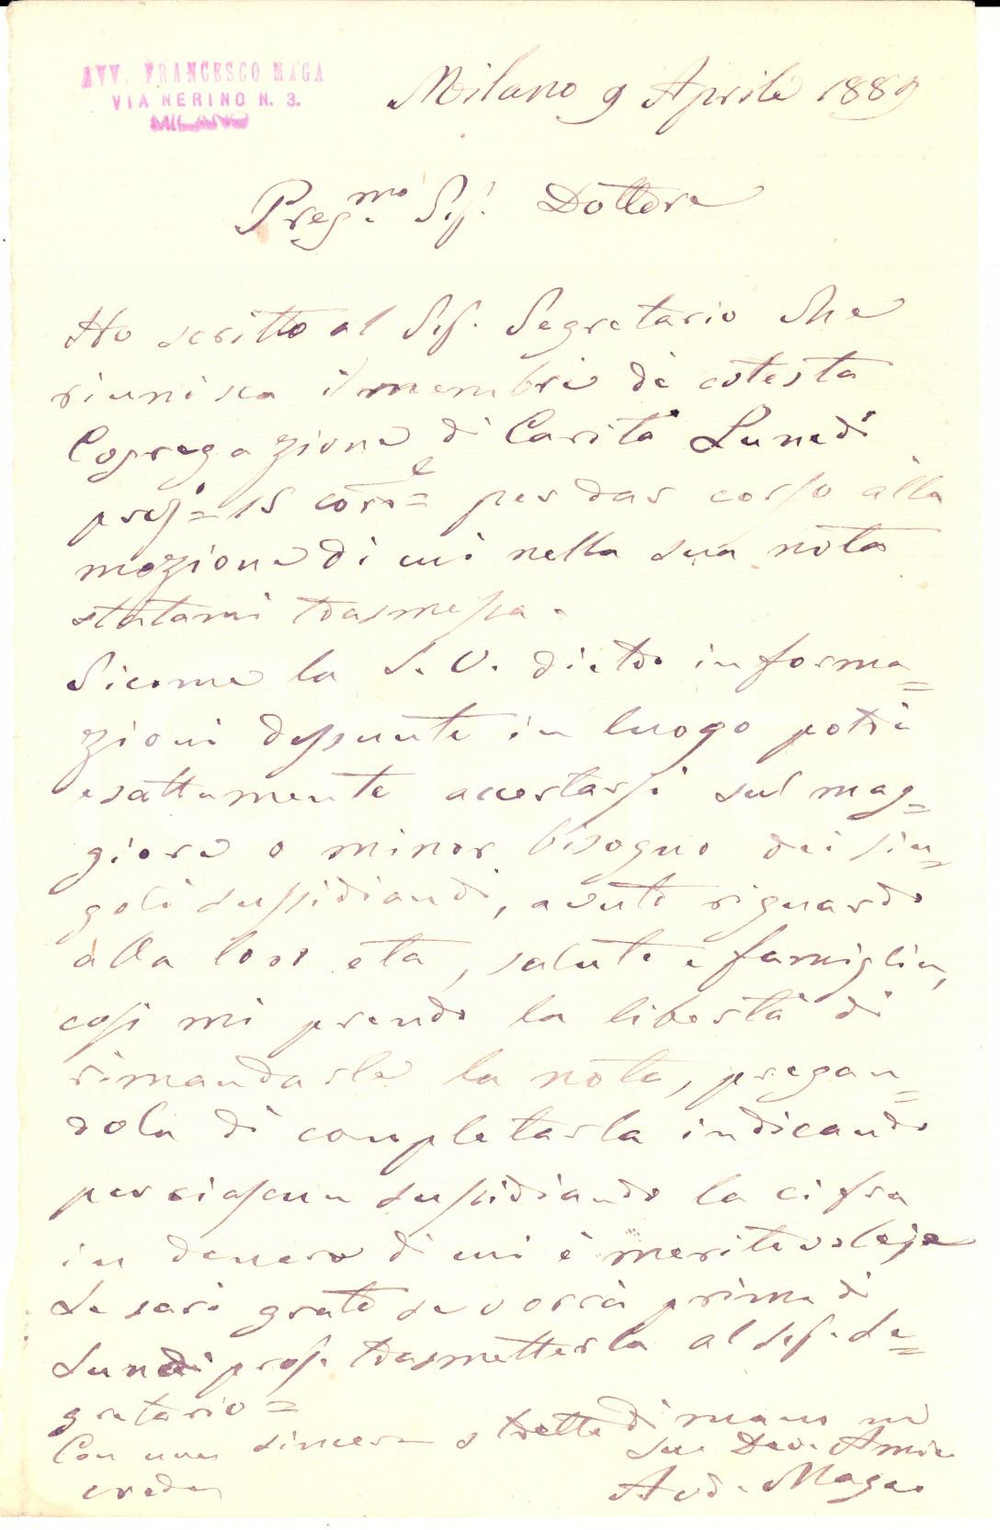 AVV. FRANCESCO MAGA
VIA NERINO N. 3.
MILANO
Milano 9 Aprile 1889
Preg.mo Sig. Dottore
Ho scritto al Sig. Segretario che
riunisca i membri di cotesta
Copregazione di Carità Lunedì
pross° 15 corre per dar corso alla
mozione di cui nella sua nota
statami trasmessa.
Sicome la S. V. dietro informa=
zioni dessunte in luogo potrà
esattamente accertarsi sul mag=
giore o minor bisogno dei sin=
goli sussidiandi, avuto riguardo
alla loro età, salute e famiglia,
così mi prendo la libertà di
rimandarle la nota, pregan=
dola di completarla indicando
per ciascun sussidiando la cifra
in denaro di cui è meritevole, e
Le sarò grato se vorrà prima di
Lunedì pross. trasmetterla al Sig. Se=
gretario =
Con una sincera stretta di mano mi
creda
Suo Dev. Amico
Avv. Maga